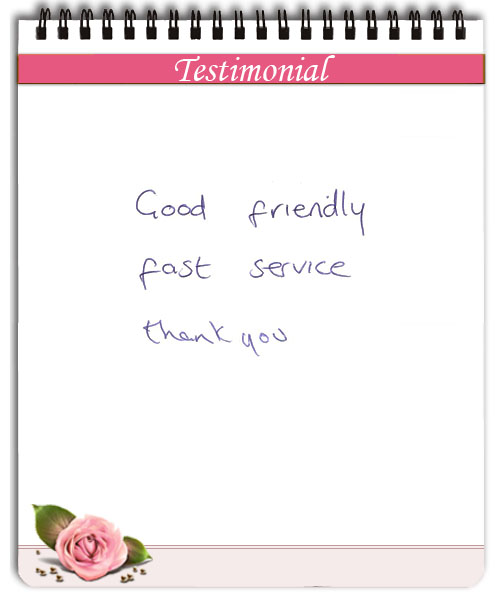 Testimonial
Good friendly
fast service
thank you